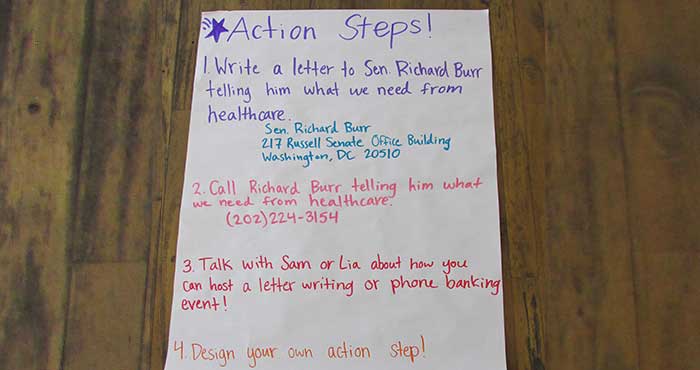 Action Steps!
1. Write a letter to Sen. Richard Burr
telling him what we need from
healthcare.
Sen. Richard Burr
217 Russell Senate Office Building
Washington, DC 20510
2. Call Richard Burr telling him what
we need from healthcare.
(202)224-3154
3. Talk with Sam or Lia about how you
can host a letter writing or phone banking
event!
4. Design your own action step!